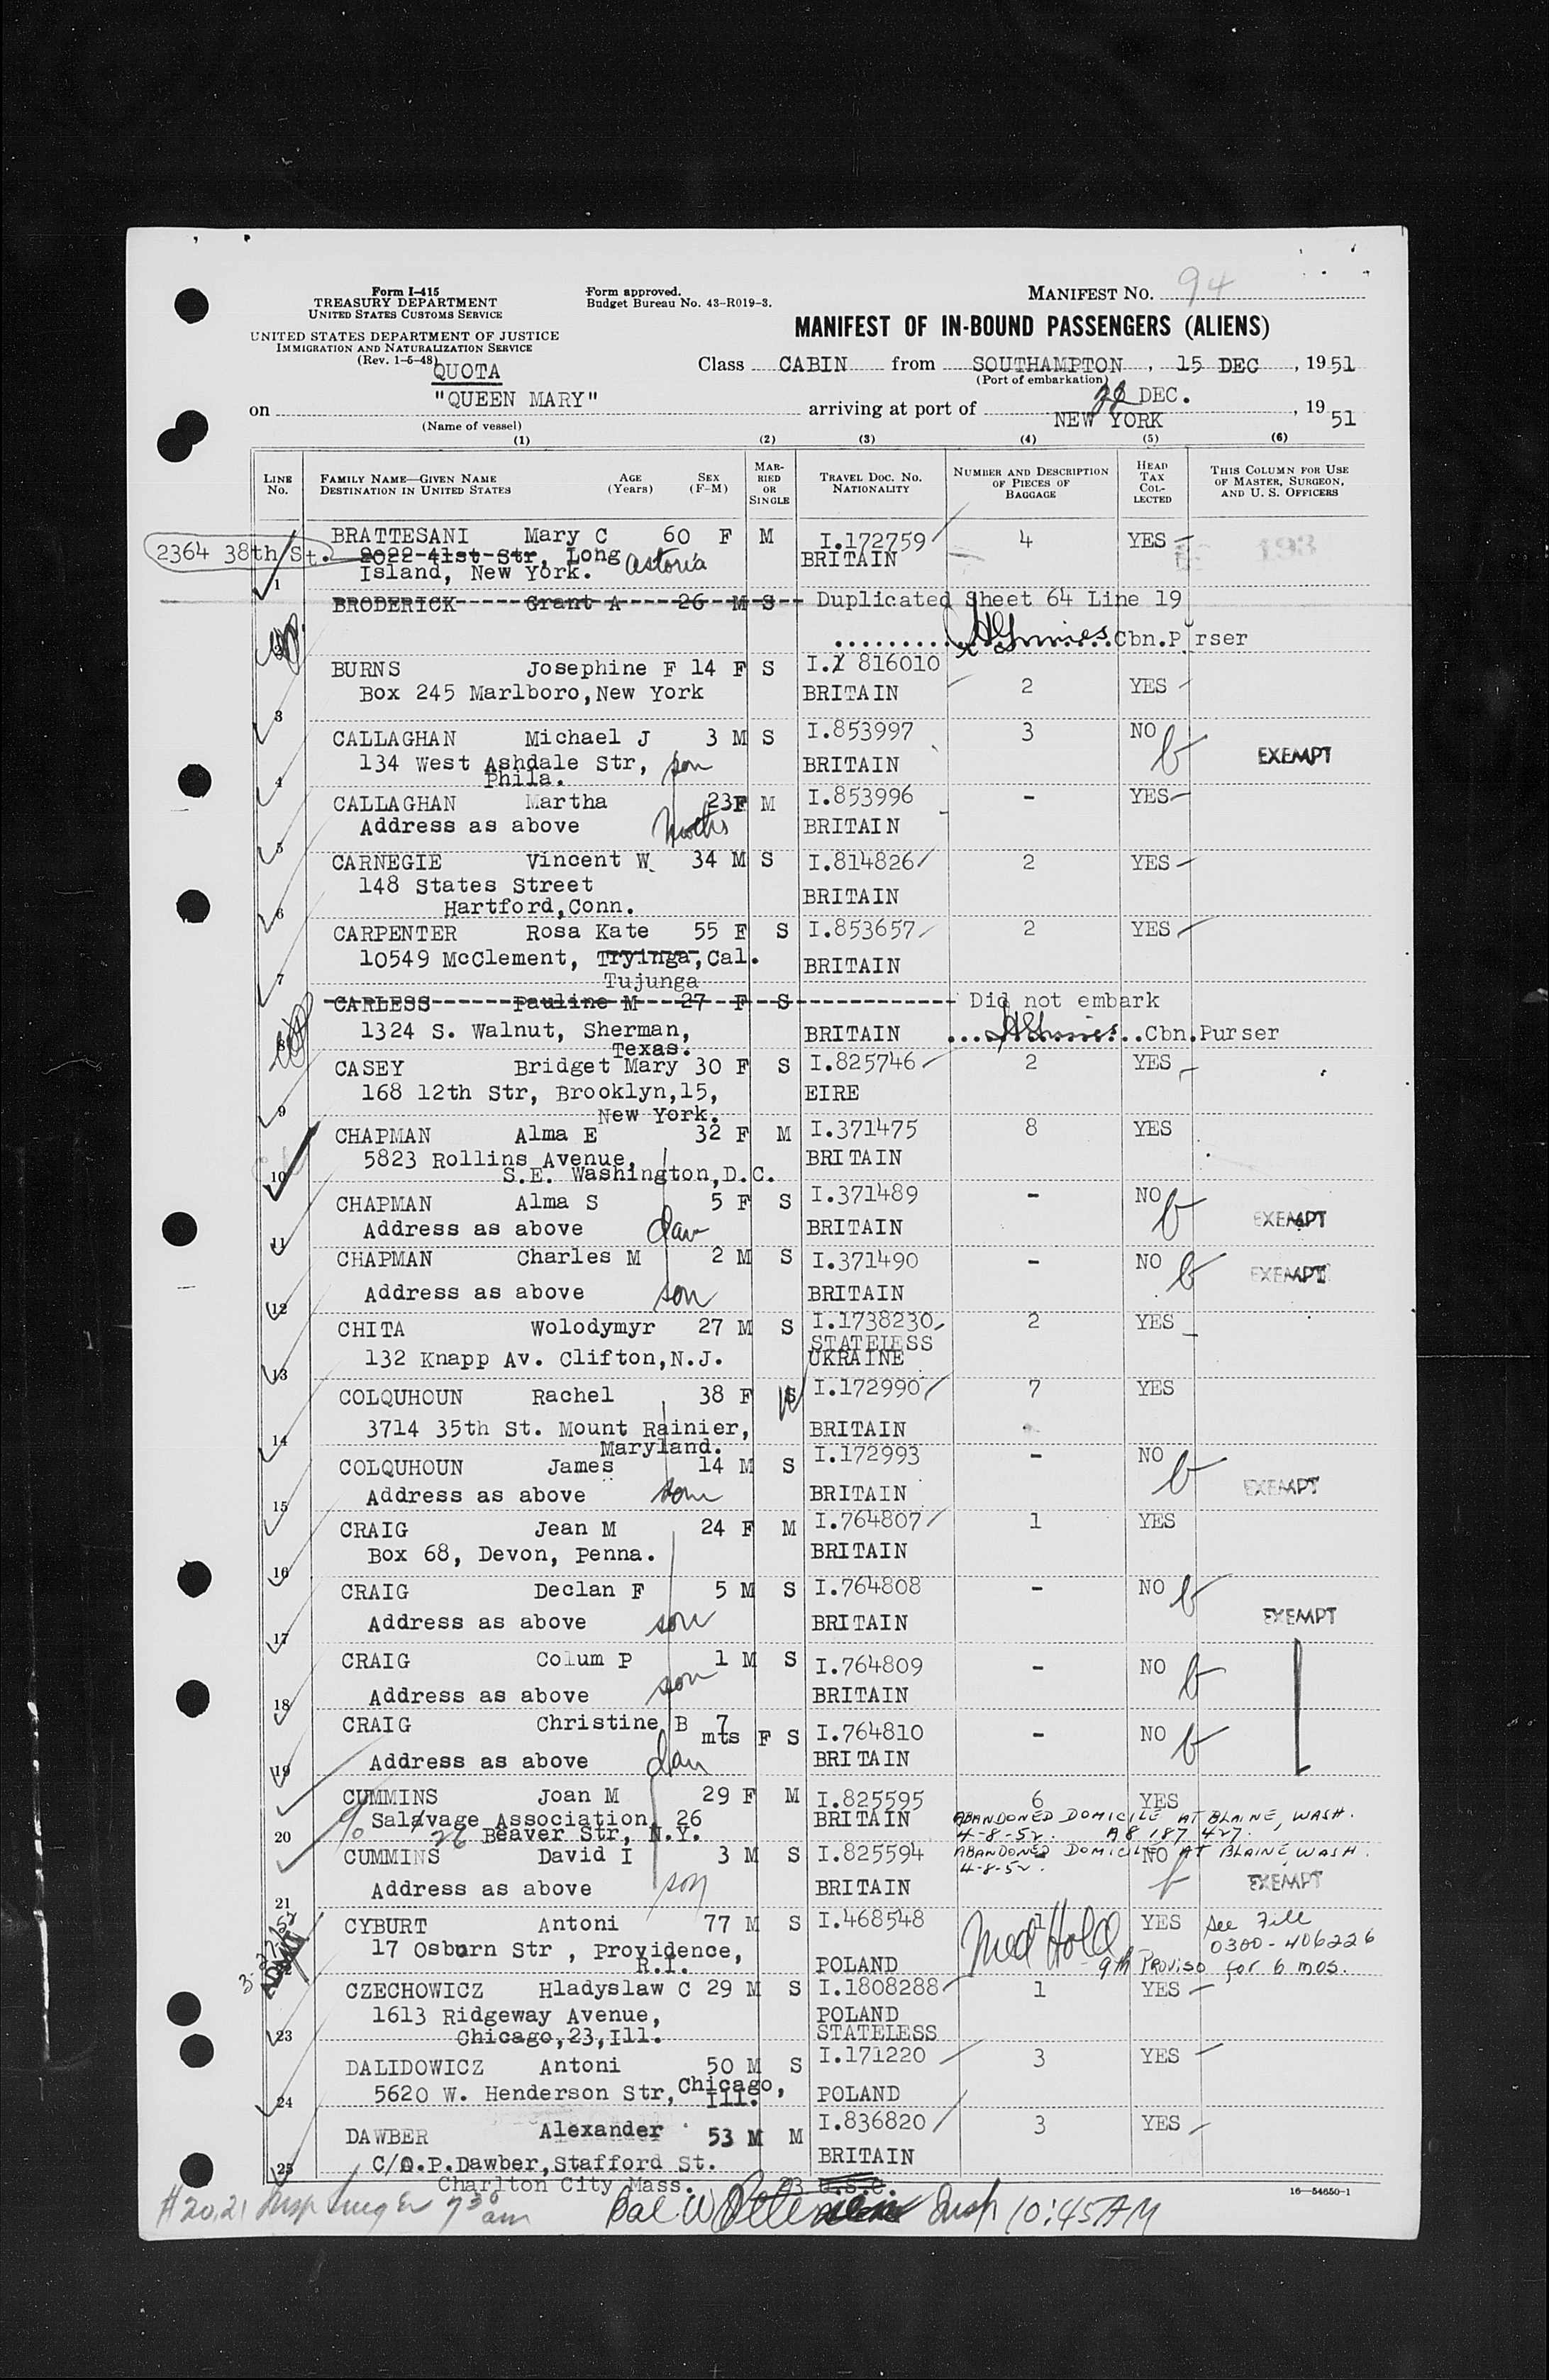 Form I-415
TREASURY DEPARTMENT
UNITED STATES CUSTOMS SERVICE
UNITED STATES DEPARTMENT OF JUSTICE
IMMIGRATION AND NATURALIZATION SERVICE
(Rev. 1-5-48)
Form approved.
Budget Bureau No. 43-R019-3.
MANIFEST NO. 94
MANIFEST OF IN-BOUND PASSENGERS (ALIENS)
Class CABIN from SOUTHAMPTON, 15 DEC, 1951
(Port of embarkation)
QUOTA
on "QUEEN MARY" arriving at port of NEW YORK DEC., 1951
(Name of vessel)
(1) (2) (3) (4) (5) (6)
LINE No. FAMILY NAME—GIVEN NAME DESTINATION IN UNITED STATES AGE (Years) SEX (F-M) MARRIED OR SINGLE TRAVEL DOC. NO. NATIONALITY NUMBER AND DESCRIPTION OF PIECES OF BAGGAGE HEAD TAX COLLECTED THIS COLUMN FOR USE OF MASTER, SURGEON, AND U. S. OFFICERS
BRATTESANI Mary C 60 F M I.172759 4 YES
2364 38th St. 2022 41st Str, Long Astoria BRITAIN 193
1 Island, New York.
BRODERICK Grant A 26 M S Duplicated Sheet 64 Line 19
Cbn.Purser
BURNS Josephine F 14 F S I. 816010
Box 245 Marlboro, New York BRITAIN 2 YES
3
CALLAGHAN Michael J 3 M S I.853997 3 NO
4 134 West Ashdale Str, son BRITAIN EXEMPT
Phila.
CALLAGHAN Martha 23 F M I.853996 - YES
5 Address as above BRITAIN
CARNEGIE Vincent W. 34 M S I.814826 2 YES
148 States Street BRITAIN
6 Hartford,Conn.
CARPENTER Rosa Kate 55 F S I.853657 2 YES
10549 McClement, Tryinga, Cal. BRITAIN
7 Tujunga
CARLESS Pauline M 27 F S Did not embark
8 1324 S. Walnut, Sherman, BRITAIN Cbn.Purser
Texas.
CASEY Bridget Mary 30 F S I.825746 2 YES
168 12th Str, Brooklyn,15, EIRE
9 New York.
CHAPMAN Alma E 32 F M I.371475 8 YES
5823 Rollins Avenue, BRITAIN
10 S.E. Washington,D.C.
CHAPMAN Alma S 5 F S I.371489 - NO
11 Address as above dau BRITAIN EXEMPT
CHAPMAN Charles M 2 M S I.371490 - NO EXEMPT
12 Address as above son BRITAIN
CHITA Wolodymyr 27 M S I.1738230 2 YES
STATELESS
13 132 Knapp Av. Clifton,N.J. UKRAINE
COLQUHOUN Rachel 38 F I.172990 7 YES
14 3714 35th St. Mount Rainier, BRITAIN
Maryland.
COLQUHOUN James 14 M S I.172993 - NO
15 Address as above son BRITAIN EXEMPT
CRAIG Jean M 24 F M I.764807 1 YES
16 Box 68, Devon, Penna. BRITAIN
CRAIG Declan F 5 M S I.764808 - NO
17 Address as above son BRITAIN EXEMPT
CRAIG Colum P 1 M S I.764809 - NO
18 Address as above son BRITAIN
CRAIG Christine B 7 mts F S I.764810 - NO
19 Address as above dau BRITAIN
CUMMINS Joan M 29 F M I.825595 6 YES
c/o Salvage Association, 26 BRITAIN ABANDONED DOMICILE AT BLAINE, WASH.
20 26 Beaver Str, N.Y. 4-8-52. A8 187 427.
CUMMINS David I 3 M S I.825594 ABANDONED DOMICILE AT BLAINE, WASH. NO
4-8-52.
21 Address as above son BRITAIN EXEMPT
CYBURT Antoni 77 M S I.468548 1 YES See File
17 Osburn Str , Providence, Med Hold 0300-406226
R.I. POLAND 9th Proviso for 6 mos.
CZECHOWICZ Hladyslaw C 29 M S I.1808288 1 YES
1613 Ridgeway Avenue, POLAND
23 Chicago,23,Ill. STATELESS
DALIDOWICZ Antoni 50 M S I.171220 3 YES
24 5620 W. Henderson Str, Chicago, Ill. POLAND
DAWBER Alexander 53 M M I.836820 3 YES
25 C/O.P.Dawber, Stafford St. BRITAIN
Charlton City Mass. 23 U.S.C.
16—54650-1
#20,21 730 am 10:45 AM